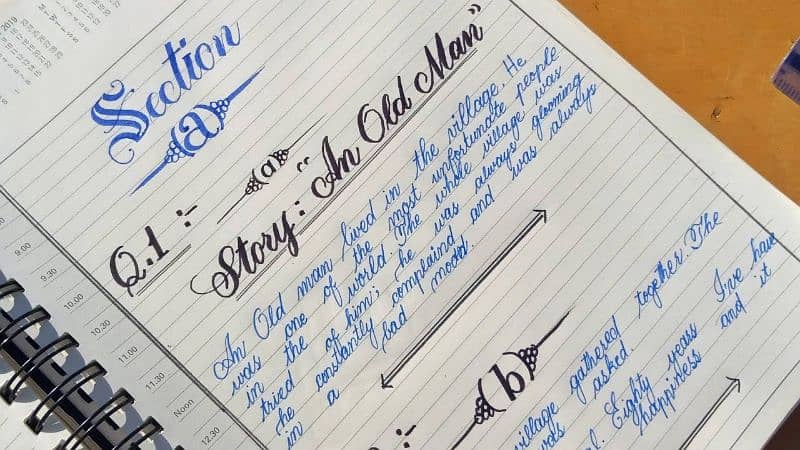 2019
Section
(a)
Q.1 :-
(a)
Story: "An Old Man"
An Old man lived in the village. He
was one of the most unfortunate people
in the world. The whole village was
tried of him; he was always glooming
he constantly complaind and was always
in a bad mood.
9.00
9.30
10.00
10.30
11.00
11.30
Noon
12.30
(b)
village gathered together. The
was asked.
Eighty years I've have
happiness and it